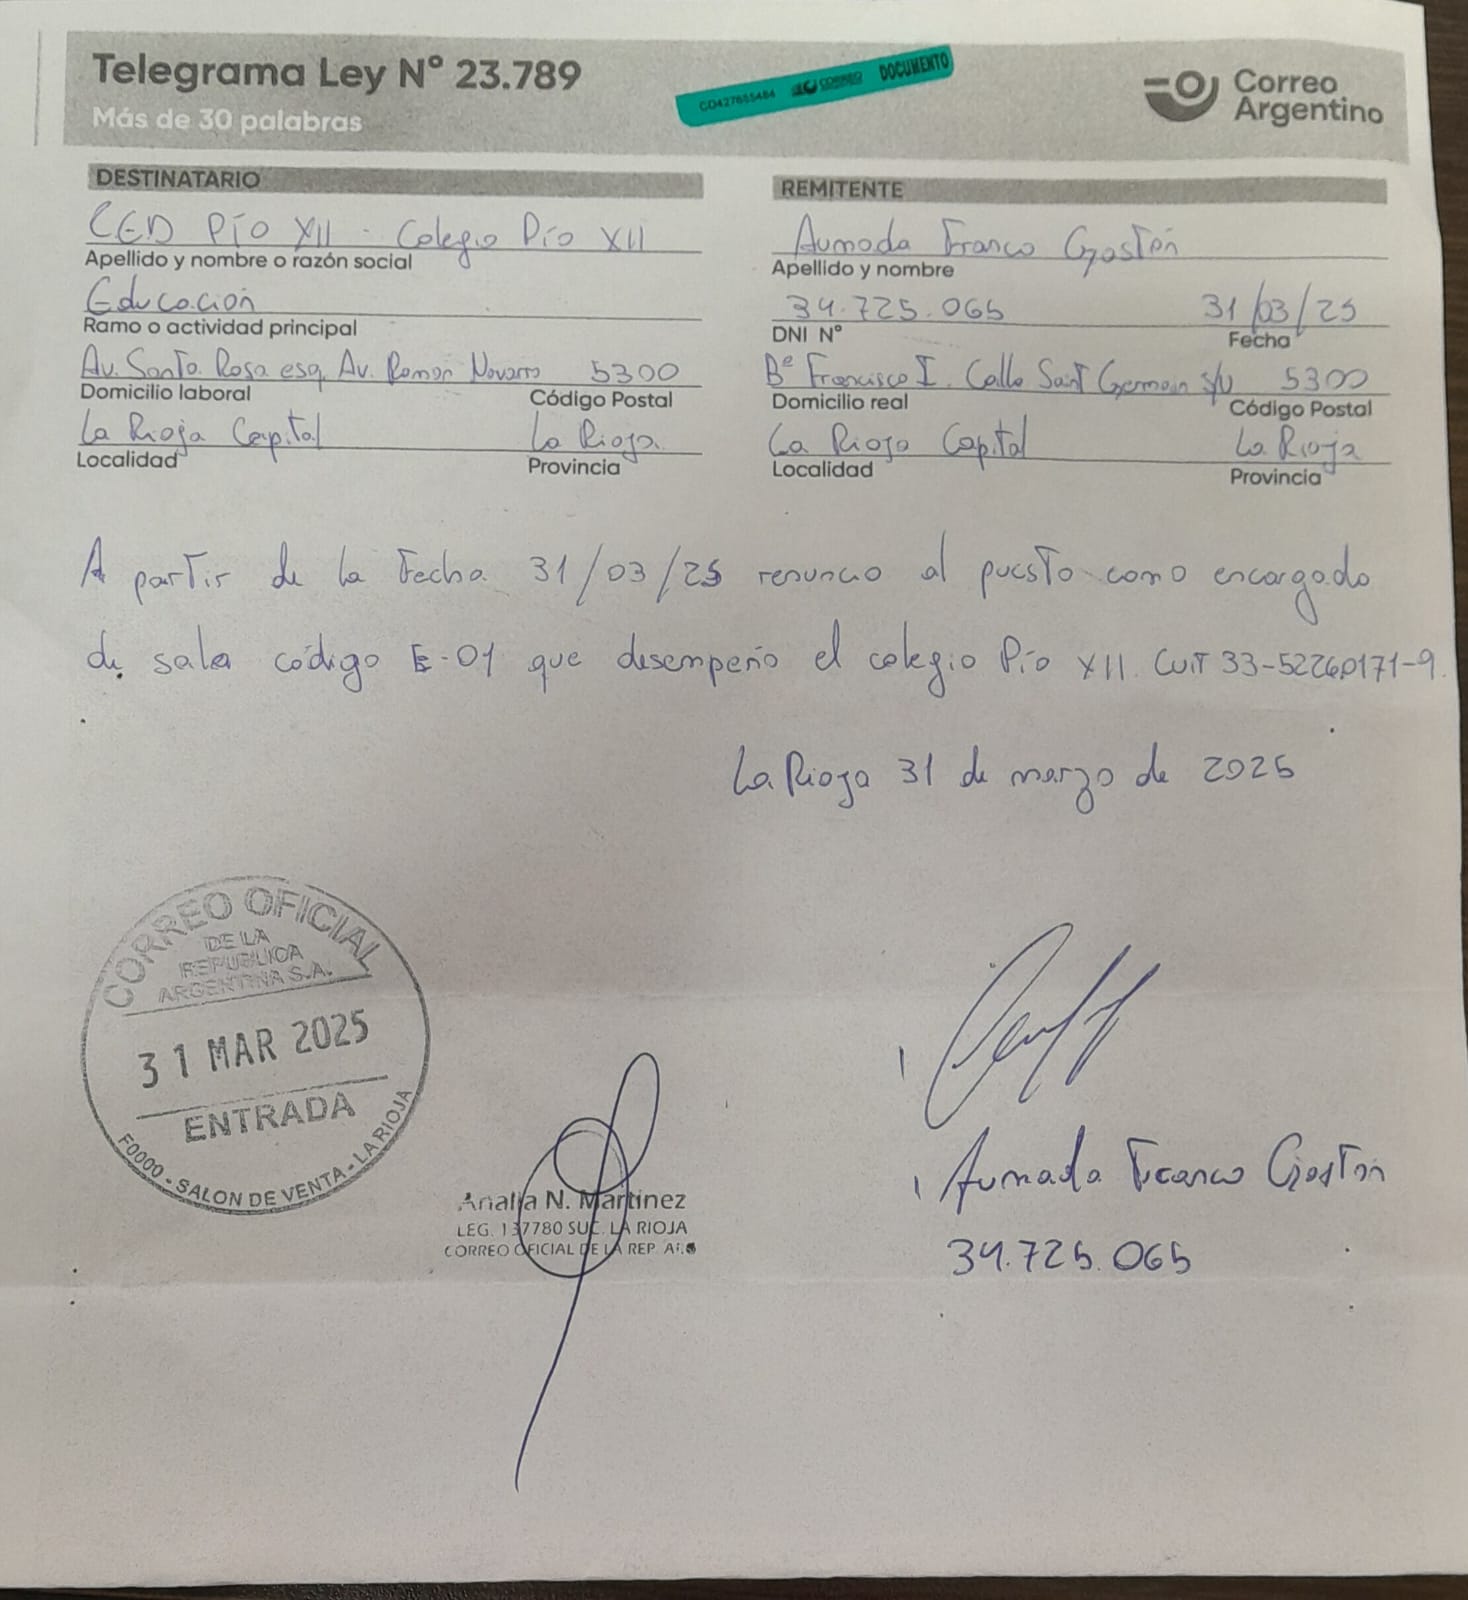 Telegrama Ley N° 23.789
Más de 30 palabras
CD427655484 CORREO DOCUMENTO
Correo
Argentino
DESTINATARIO
CED Pío XII - Colegio Pío XII
Apellido y nombre o razón social
Educación
Ramo o actividad principal
Av. Santa Rosa esq. Av. Ramon Navarro 5300
Domicilio laboral Código Postal
La Rioja Capital La Rioja
Localidad Provincia
REMITENTE
Aumada Franco Gastón
Apellido y nombre
34.725.065 31/03/25
DNI N° Fecha
B° Francisco I. Calle Saint Germain s/n 5300
Domicilio real Código Postal
La Rioja Capital La Rioja
Localidad Provincia
A partir de la fecha 31/03/25 renuncio al puesto como encargado
de sala código E-01 que desempeño el colegio Pío XII. CUIT 33-52260171-9.
La Rioja 31 de marzo de 2025
CORREO OFICIAL
DE LA
REPUBLICA
ARGENTINA S.A.
31 MAR 2025
ENTRADA
F0000 - SALON DE VENTA - LA RIOJA
Analia N. Martinez
LEG. 137780 SUC. LA RIOJA
CORREO OFICIAL DE LA REP.
Aumada Franco Gastón
34.725.065